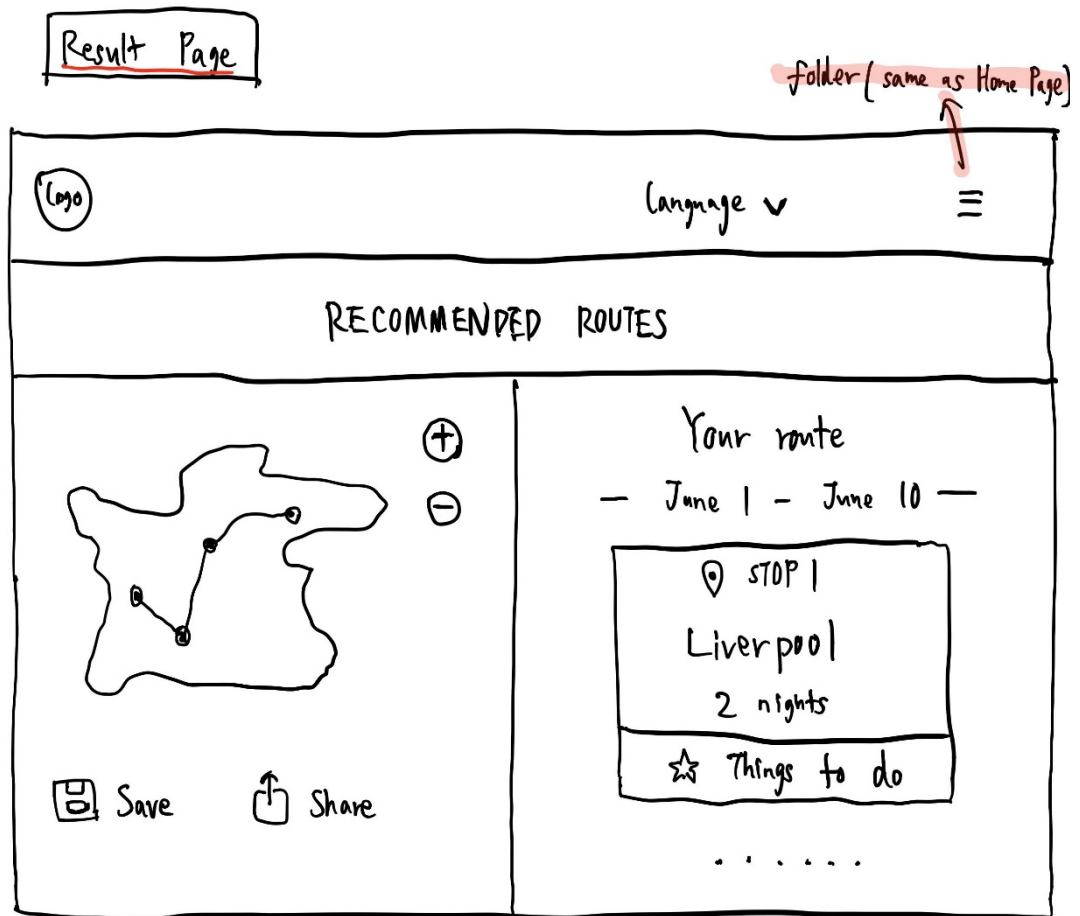 Result Page
folder (same as Home Page)
Logo
Language
RECOMMENDED ROUTES
Your route
— June 1 - June 10 —
STOP 1
Liverpool
2 nights
Things to do
Save
Share
......